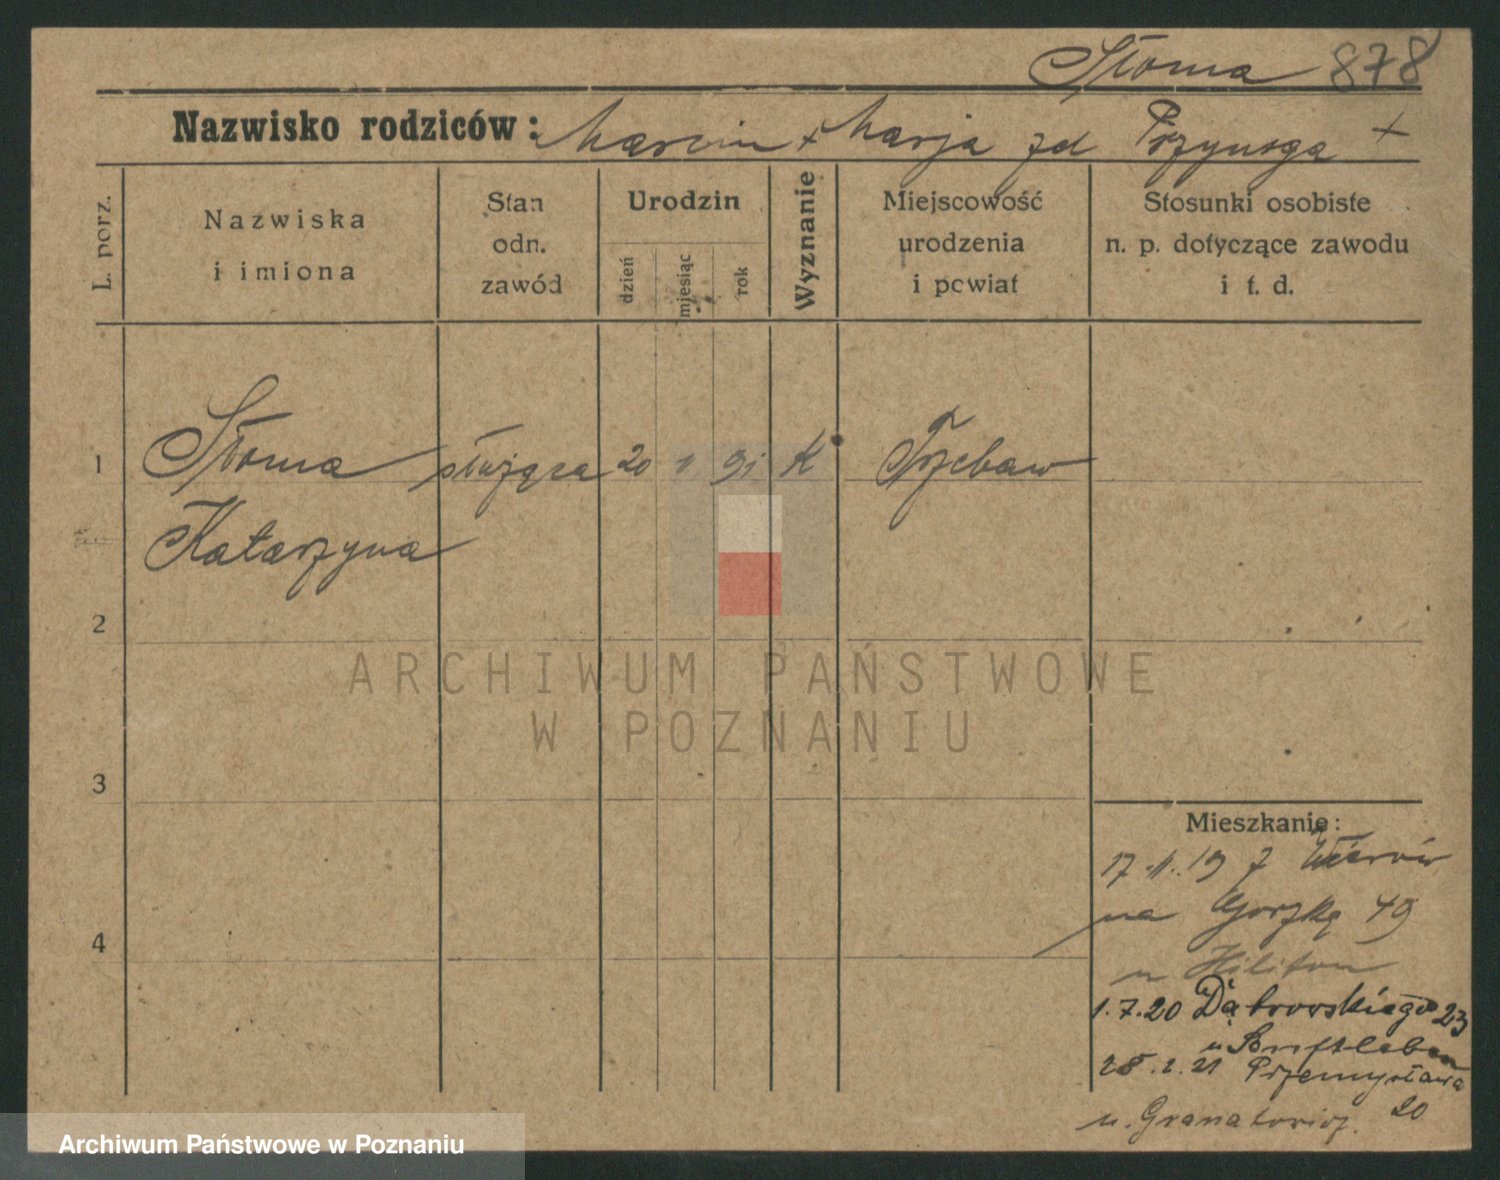 Słoma 878
Nazwisko rodziców: Marcin + Marja zd Przynoga +
L. porz.
Nazwiska
i imiona
Stan
odn.
zawód
Urodzin
dzień
miesiąc
rok
Wyznanie
Miejscowość
urodzenia
i powiat
Stosunki osobiste
n. p. dotyczące zawodu
i t. d.
1 Słoma służąca 20 1. 91 K Trzebaw
Katarzyna
2
ARCHIWUM PAŃSTWOWE
W POZNANIU
3
Mieszkanie:
17.11.19 z
na Gorzką 49
4
u
1.7.20 Dąbrowskiego 23
u Senftleben
28.2.21 Przemysława
20
u.
Archiwum Państwowe w Poznaniu